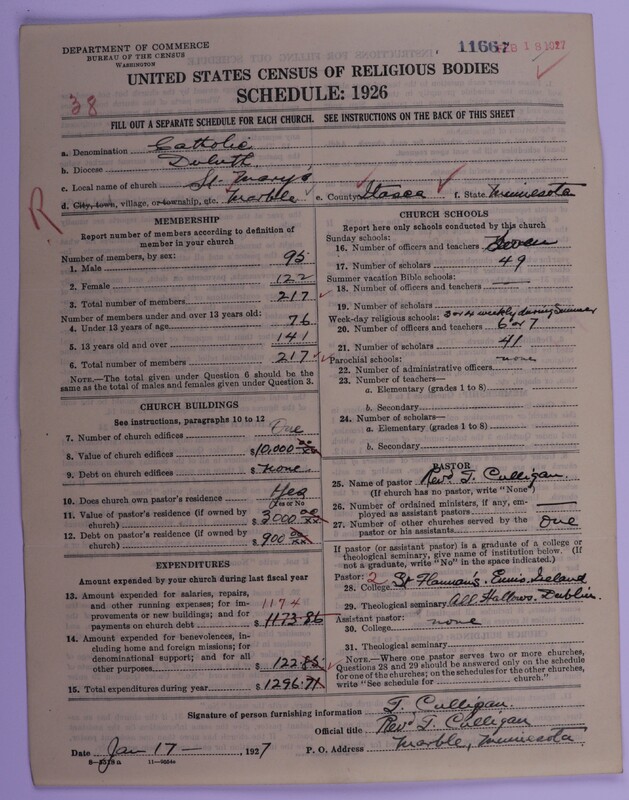 DEPARTMENT OF COMMERCE
BUREAU OF THE CENSUS
WASHINGTON
1166 FEB 18 1927
UNITED STATES CENSUS OF RELIGIOUS BODIES
SCHEDULE: 1926
38
FILL OUT A SEPARATE SCHEDULE FOR EACH CHURCH. SEE INSTRUCTIONS ON THE BACK OF THIS SHEET
a. Denomination Catholic
b. Diocese Duluth
c. Local name of church St. Mary's
d. City, town, village, or township, etc. Marble e. County Itasca f. State Minnesota
R
MEMBERSHIP
Report number of members according to definition of
member in your church
Number of members, by sex:
1. Male 95
2. Female 122
3. Total number of members 217
Number of members under and over 13 years old:
4. Under 13 years of age 76
5. 13 years old and over 141
6. Total number of members 217
NOTE.—The total given under Question 6 should be
same as the total of males and females given under Question 3.
CHURCH BUILDINGS
See instructions, paragraphs 10 to 12
7. Number of church edifices One
8. Value of church edifices $10,000 00/xx
9. Debt on church edifices $ None
10. Does church own pastor's residence Yes
(Yes or No
11. Value of pastor's residence (if owned by
church) $ 3000 00/xx
12. Debt on pastor's residence (if owned by
church) $ 900 00/xx
EXPENDITURES
Amount expended by your church during last fiscal year
13. Amount expended for salaries, repairs,
and other running expenses; for im-
provements or new buildings; and for
payments on church debt $ 1173.86
1174
14. Amount expended for benevolences, in-
cluding home and foreign missions; for
denominational support; and for all
other purposes $ 122.85
15. Total expenditures during year $ 1296.71
CHURCH SCHOOLS
Report here only schools conducted by this church
Sunday schools:
16. Number of officers and teachers Seven
17. Number of scholars 49
Summer vacation Bible schools:
18. Number of officers and teachers
19. Number of scholars
Week-day religious schools: 3 or 4 weekly during Summer
20. Number of officers and teachers 6 or 7
21. Number of scholars 41
Parochial schools: none
22. Number of administrative officers
23. Number of teachers—
a. Elementary (grades 1 to 8)
b. Secondary
24. Number of scholars—
a. Elementary (grades 1 to 8)
b. Secondary
PASTOR
25. Name of pastor Rev. T. Culligan
(If church has no pastor, write "None")
26. Number of ordained ministers, if any, em-
ployed as assistant pastors
27. Number of other churches served by the
pastor or his assistants One
If pastor (or assistant pastor) is a graduate of a college or
theological seminary, give name of institution below. (If
not a graduate, write "No" in the space indicated.)
Pastor: 2
28. College St Flannan's. Ennis, Ireland
29. Theological seminary All Hallows. Dublin.
Assistant pastor:
30. College none
31. Theological seminary
NOTE.—Where one pastor serves two or more churches,
Questions 28 and 29 should be answered only on the schedule
for one of the churches; on the schedules for the other churches,
write "See schedule for church."
Signature of person furnishing information T. Culligan.
Official title Rev. T. Culligan
Date Jan 17 —, 1927 P. O. Address Marble, Minnesota.
8-5518a 11-9054a